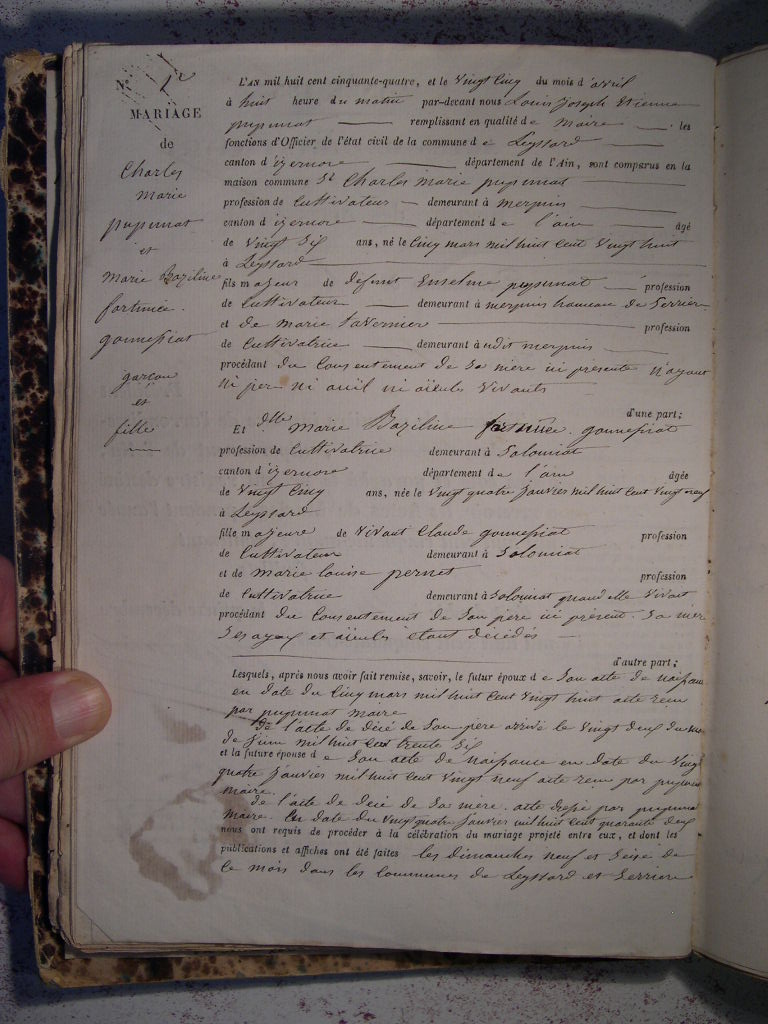 N° 1
MARIAGE
de
Charles
marie
pupunat
et
marie Baziline
fortunée.
gonnessiat
garçon
et
fille
L'AN mil huit cent cinquante-quatre, et le vingt cinq du mois d'avril
à huit heure du matin par-devant nous Louis joseph Etienne
pupunat remplissant en qualité de maire les
fonctions d'Officier de l'état civil de la commune de Leyssard
canton d'izernore département de l'Ain, sont comparus en la
maison commune Sr Charles marie pupunat
profession de Cultivateur demeurant à merpuis
canton d'izernore département de l'ain âgé
de vingt six ans, né le Cinq mars mil huit Cent vingt huit
à Leyssard
fils majeur de deffunt Enselme pupunat profession
de Cultivateur demeurant à merpuis hameau de Serrier
et de marie tavernier profession
de Cultivatrice demeurant à udit merpuis
procédant du Consentement de Sa mère ici présente n'ayant
ni per ni auil ni aïeuls vivants
d'une part;
Et dlle marie Baziline fortunée. gonnessiat
profession de Cultivatrice demeurant à Solomiat
canton d'izernore département de l'ain âgée
de vingt Cinq ans, née le vingt quatre janvier mil huit Cent vingt neuf
à Leyssard
fille majeure de vivant Claude gonnessiat profession
de Cultivateur demeurant à Solomiat
et de marie louise pernet profession
de Cultivatrice demeurant à Solomiat quand elle vivait
procédant du Consentement de Son père ici présent. Sa mère
Ses ayeux et aïeules étant décédés
d'autre part;
Lesquels, après nous avoir fait remise, savoir, le futur époux de Son acte de naissance
en date du Cinq mars mil huit Cent vingt huit acte recu
par pupunat maire
de l'acte de décé de Son père arrivé le vingt deux du
de juin mil huit Cent trente Six
et la future épouse de Son acte de naissance en date du vingt
quatre janvier mil huit Cent vingt neuf acte reçu par pupunat
maire.
de l'acte de décé de Sa mère. acte par pupunat
maire. En date du vingt quatre janvier mil huit Cent quarante deux
nous ont requis de procéder à la célébration du mariage projeté entre eux, et dont les
publications et affiches ont été faites les dimanches neuf et Seize de
Ce mois dans les Communes de Leyssard et Serriere